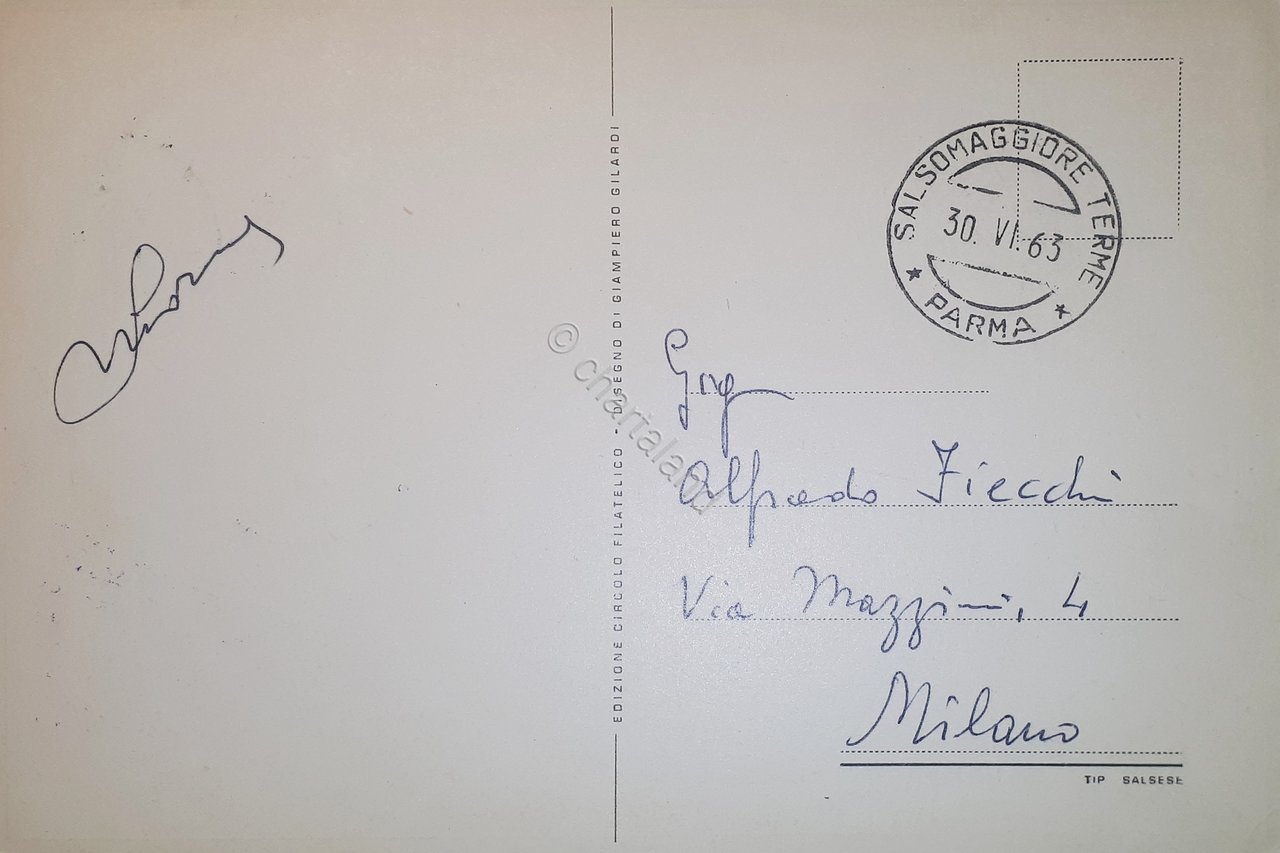 SALSOMAGGIORE TERME
30. VI. 63
* PARMA *
Alfredo Fiecchi
Via Mazzini, 4
Milano
TIP SALSESE
EDIZIONE CIRCOLO FILATELICO - DISEGNO DI GIAMPIERO GILARDI
© chartaland